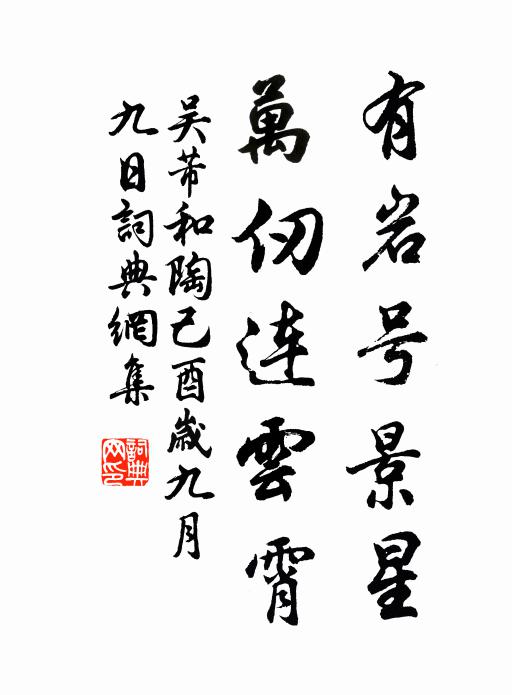 有岩号景星
萬仞連雲霄
吴芾和陶己酉歲九月
九日詞典網集
詞典
网印